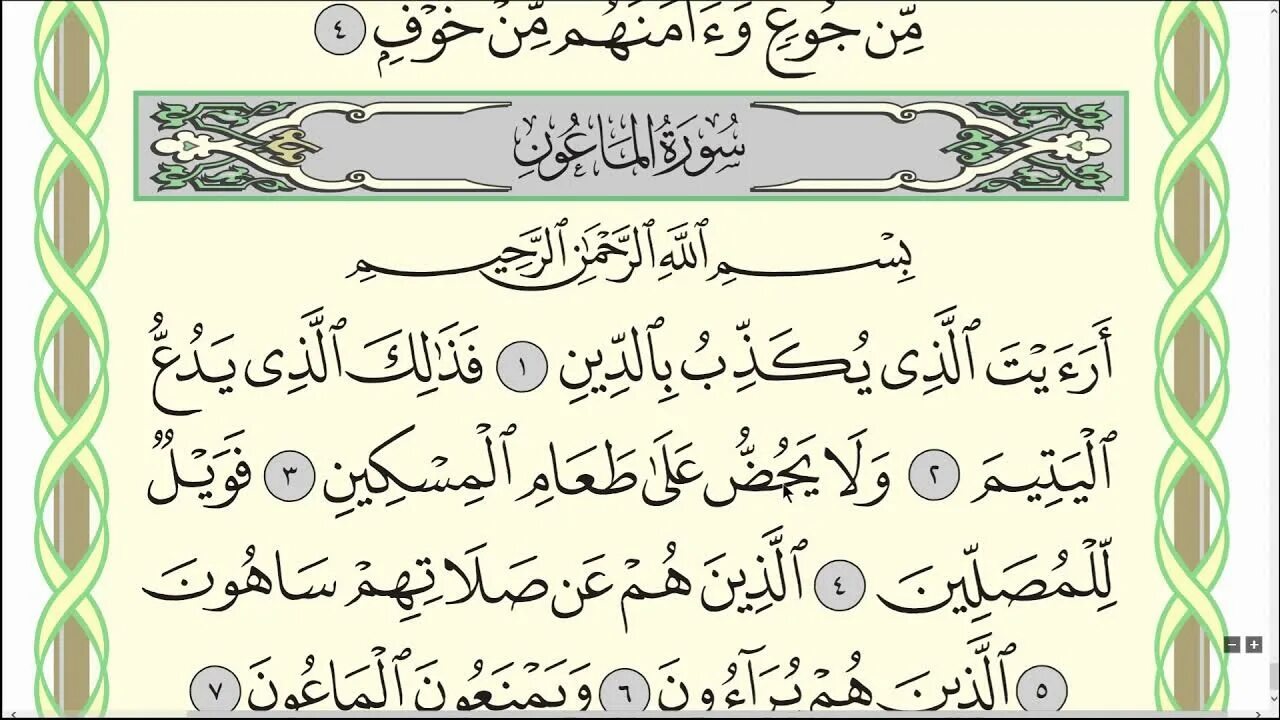 مِّن جُوعٍ وَءَامَنَهُم مِّنْ خَوْفٍۭ ٤
سُورَةُ المَاعُونِ
بِسْمِ ٱللَّهِ ٱلرَّحْمَٰنِ ٱلرَّحِيمِ
أَرَءَيْتَ ٱلَّذِى يُكَذِّبُ بِٱلدِّينِ ١ فَذَٰلِكَ ٱلَّذِى يَدُعُّ
ٱلْيَتِيمَ ٢ وَلَا يَحُضُّ عَلَىٰ طَعَامِ ٱلْمِسْكِينِ ٣ فَوَيْلٌ
لِّلْمُصَلِّينَ ٤ ٱلَّذِينَ هُمْ عَن صَلَاتِهِمْ سَاهُونَ
٥ ٱلَّذِينَ هُمْ يُرَآءُونَ ٦ وَيَمْنَعُونَ ٱلْمَاعُونَ ٧